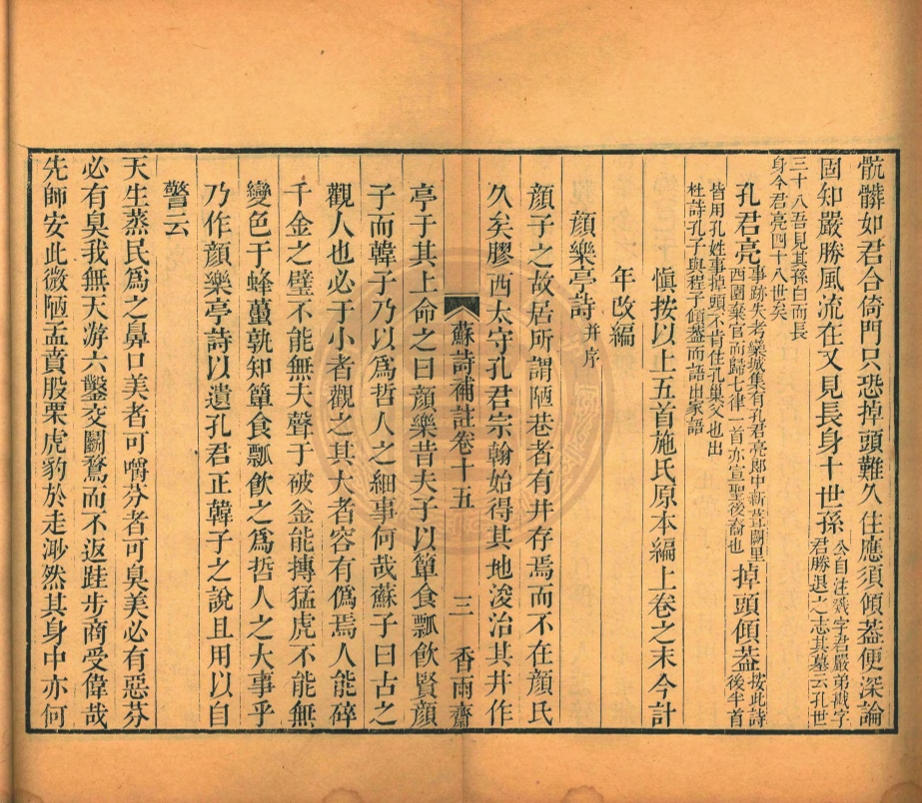 骯髒如君合倚門只恐掉頭難久住應須傾葢便深論
固知嚴勝風流在又見長身十世孫 公自注戣字君嚴弟戡字
君勝退之志其墓云孔世
三十八吾見其孫白而長
身今君亮四十八世矣
孔君亮 事跡失考欒城集有孔君亮郎中新葺闕里
西園棄官而歸七律一首亦宣聖後裔也 掉頭傾葢 按此詩
後半首
皆用孔姓事掉頭不肯住孔巢父也出
杜詩孔子與程子傾葢而語出家語
愼按以上五首施氏原本編上卷之末今計
年改編
顏樂亭詩 并序
顏子之故居所謂陋巷者有井存焉而不在顏氏
久矣膠西太守孔君宗翰始得其地浚治其井作
蘇詩補註卷十五 三 香雨齋
亭于其上命之曰顏樂昔夫子以簞食瓢飲賢顏
子而韓子乃以爲哲人之細事何哉蘇子曰古之
觀人也必于小者觀之其大者容有僞焉人能碎
千金之璧不能無失聲于破釜能摶猛虎不能無
變色于蜂蠆孰知簞食瓢飲之爲哲人之大事乎
乃作顏樂亭詩以遺孔君正韓子之說且用以自
警云
天生蒸民爲之鼻口美者可嚼芬者可臭美必有惡芬
必有臭我無天游六鑿交鬭騖而不返跬步商受偉哉
先師安此微陋孟賁股栗虎豹於走渺然其身中亦何